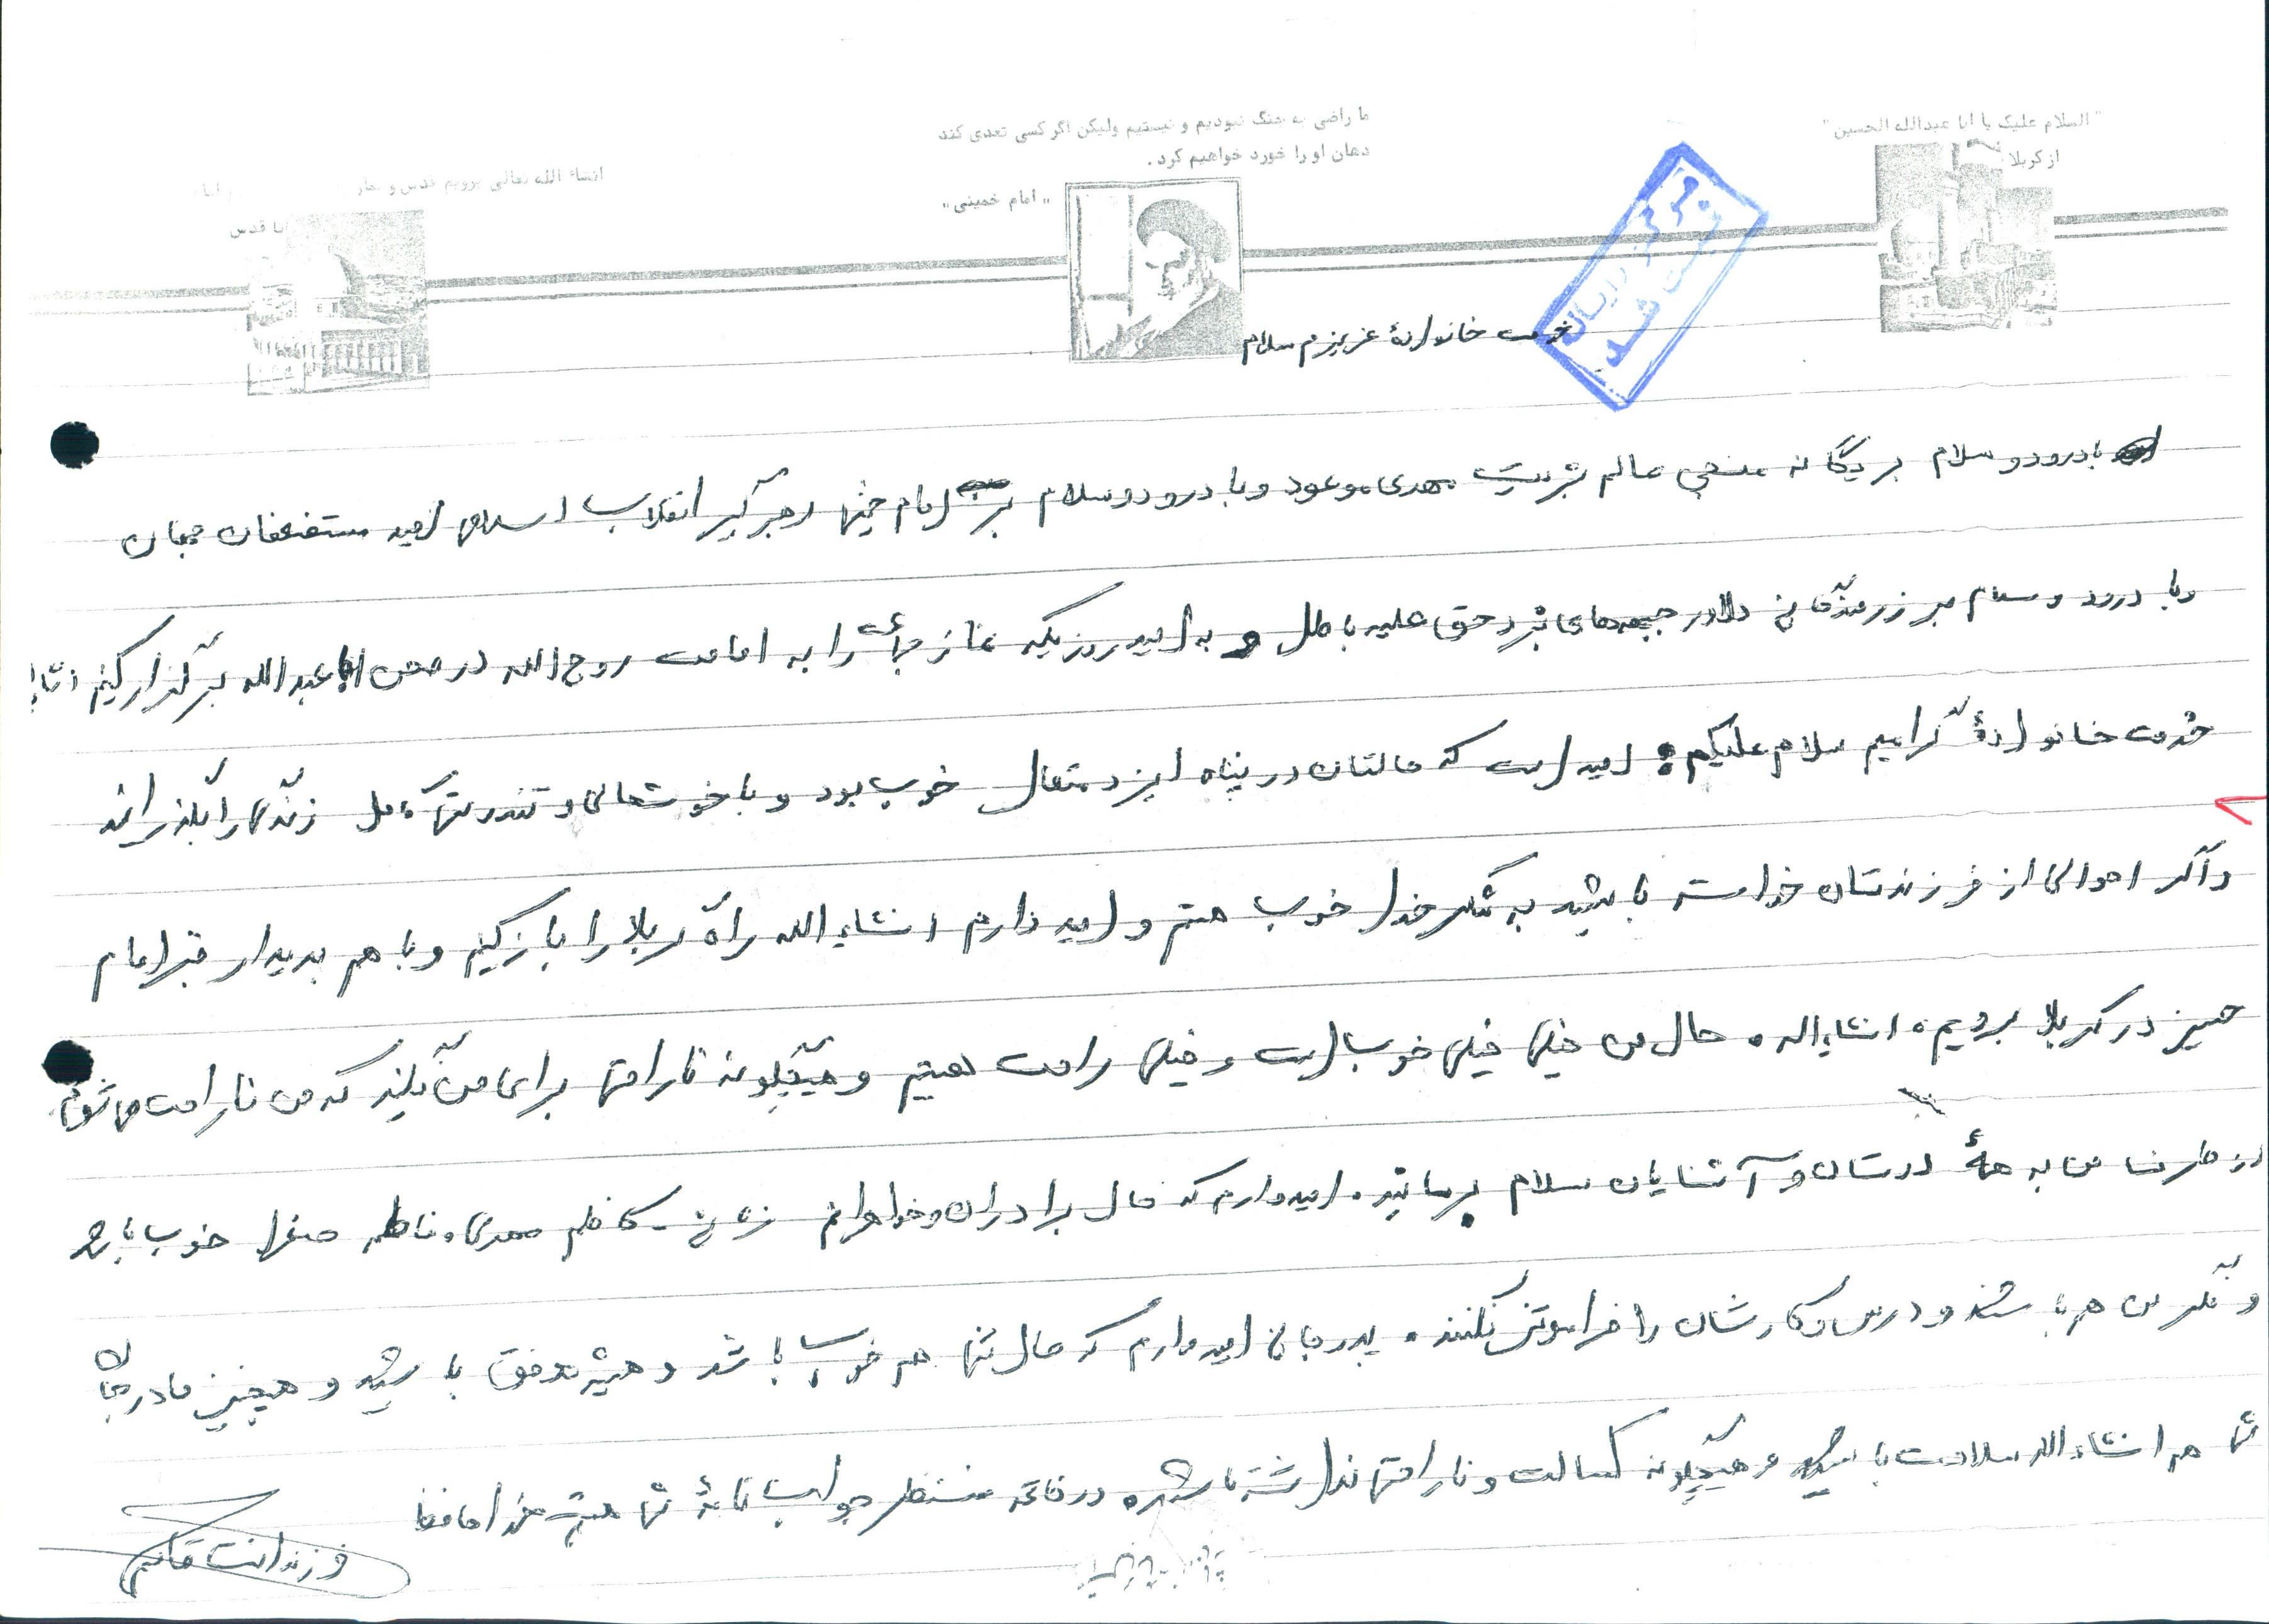 "السلام علیک یا ابا عبدالله الحسین"
از کربلا
ما راضی به جنگ نبودیم و نیستیم ولیکن اگر کسی تعدی کند
دهان او را خورد خواهیم کرد.
"امام خمینی"
انشاء الله تعالی برویم قدس و نماز
تا قدس
مرکز رایانه
ثبت شد
خدمت خانوادهٔ عزیزم سلام
با درود و سلام بر یگانه منجی عالم بشریت مهدی موعود و با درود و سلام بر امام خمینی رهبر کبیر انقلاب اسلامی امید مستضعفان جهان
و با درود و سلام بر رزمندگان دلاور جبهه‌های نبرد حق علیه باطل و به امید روزیکه نماز جماعت را به امامت روح الله در صحن ابا عبدالله برگزار کنیم انشاا
خدمت خانوادهٔ گرامیم سلام علیکم امید است که حالتان در پناه ایزد متعال خوب بود و با خوشحالی و تندرستی کامل زندگی را بگذرانند
و اگر احوالی از فرزندتان خواسته باشید به شکر خدا خوب هستم و امید دارم انشاء الله راه کربلا را باز کنیم و با هم بدیدار قبر امام
حسین در کربلا برویم. انشاءاله. حال من خیلی خیلی خوب است و خیلی راحت هستیم و هیچگونه ناراحتی برای من نکنید که من ناراحت می شوم
از طرف من به همهٔ دوستان و آشنایان سلام برسانید. امیدوارم که حال برادران و خواهرانم کاظم مهدی و فاطمه صغرا خوب باشد
و بفکر من هم باشند و درس و کارشان را فراموش نکنند. پدر جان امیدوارم که حال شما هم خوب باشد و همیشه موفق باشید و همچنین مادر جان
شما هم انشاء الله سلامت باشید و هیچگونه کسالت و ناراحتی نداشته باشید در خاتمه منتظر جواب نامهٔ شما هستم خداحافظ
فرزندانت قاسم